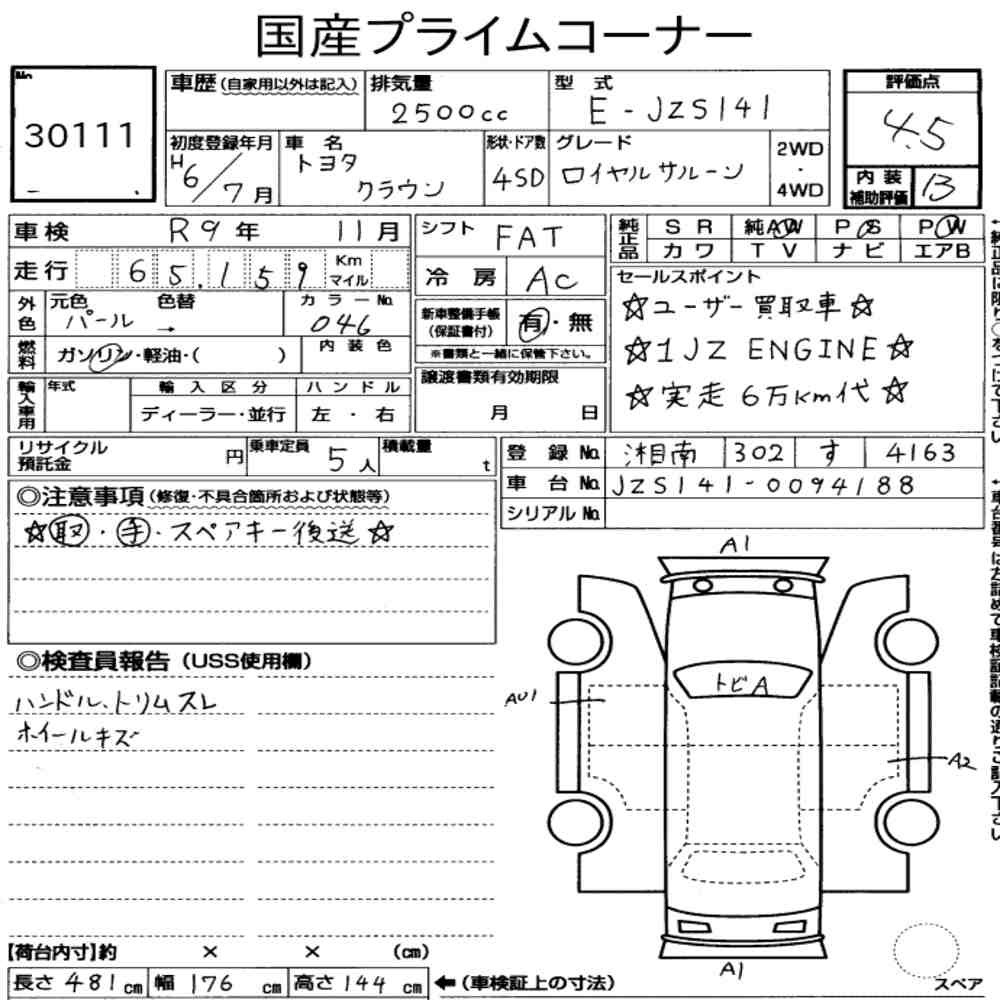 国産プライムコーナー
No. 30111
車歴 (自家用以外は記入)
排気量 2500cc
型式 E-JZS141
評価点 4.5
初度登録年月 H6/7月
車名 トヨタ クラウン
形状・ドア数 4SD
グレード ロイヤルサルーン
2WD・4WD
内装補助評価 B
車検 R9年 11月
シフト FAT
純正品 SR 純AW PS PW
カワ TV ナビ エアB
走行 65,159 Km マイル
冷房 AC
セールスポイント
☆ユーザー買取車☆
☆1JZ ENGINE☆
☆実走6万Km代☆
外色 元色 パール → 色替 カラーNo. 046
新車整備手帳(保証書付) 有・無
※書類と一緒に保管下さい。
燃料 ガソリン・軽油・( )
内装色
輸入車用 年式 輸入区分 ハンドル
ディーラー・並行 左・右
譲渡書類有効期限
月 日
リサイクル預託金 円
乗車定員 5人
積載量 t
登録No. 湘南 302 す 4163
車台No. JZS141-0094188
シリアルNo.
◎注意事項 (修復・不具合箇所および状態等)
☆取・手・スペアキー後送☆
◎検査員報告 (USS使用欄)
ハンドル、トリムスレ
ホイールキズ
A1
トビA
AU1
A2
A1
スペア
【荷台内寸】約 × × (cm)
長さ 481cm 幅 176cm 高さ 144cm ←(車検証上の寸法)